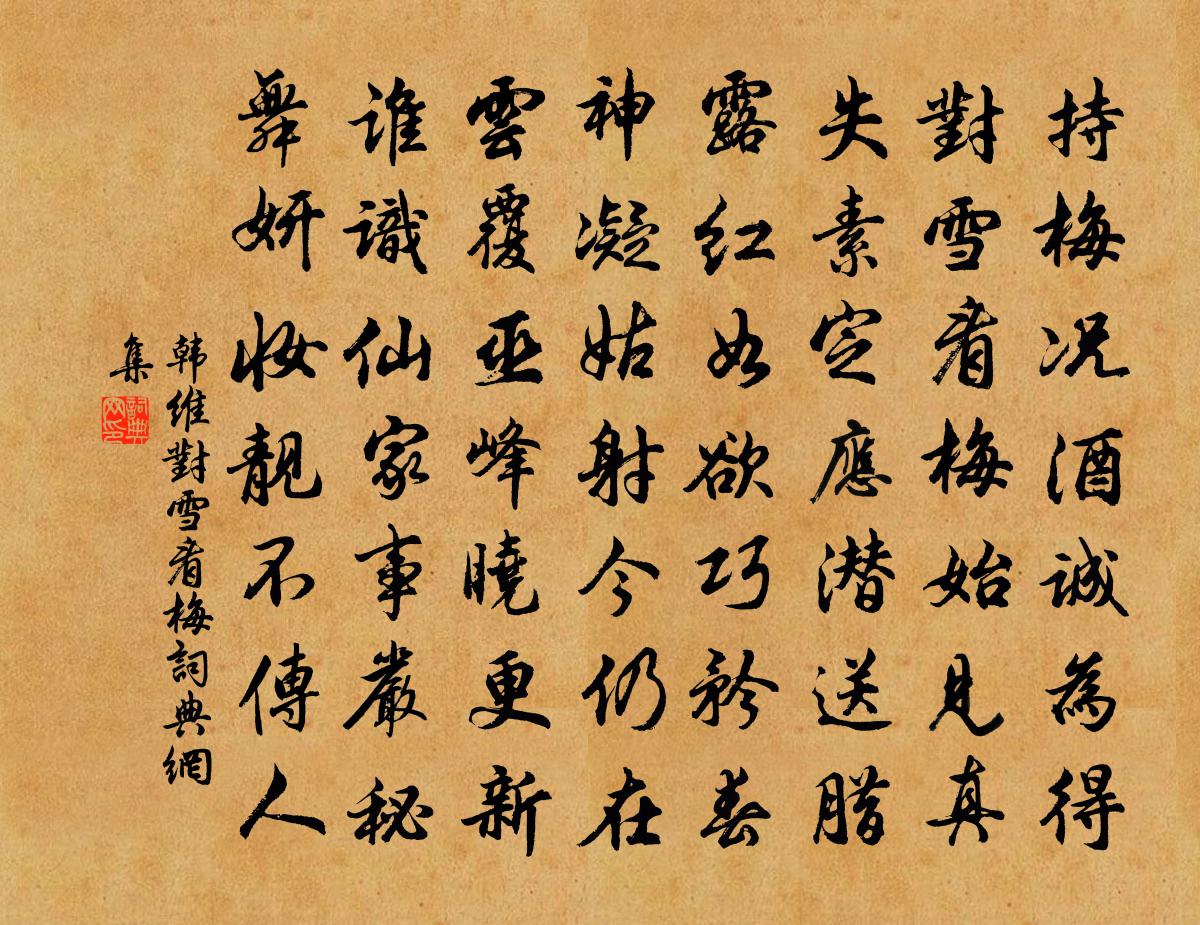 持梅况酒诚為得
對雪看梅始見真
失素定應潜送腊
露红如欲巧矜春
神凝姑射今仍在
雲覆巫峰曉更新
谁識仙家事嚴秘
舞妍妝靓不傳人
韩維對雪看梅詞典網
集
詞典
网印